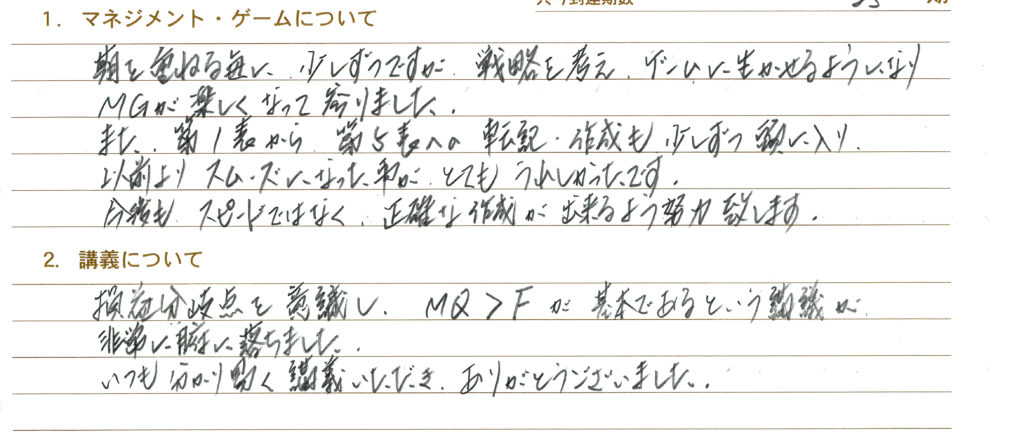 1. マネジメント・ゲームについて
期を重ねる毎に、少しずつですが、戦略を考え、ゲームに生かせるようになり
MGが楽しくなって参りました。
また、第1表から第5表への転記・作成も少しずつ頭に入り、
以前よりスムーズになった事が、とてもうれしかったです。
今後も、スピードではなく、正確な作成が出来るよう努力致します。
2. 講義について
損益分岐点を意識し、MQ>Fが基本であるという講義が
非常に腑に落ちました。
いつも分かり易く講義いただき、ありがとうございました。